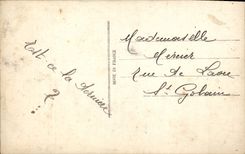 Est ce la dernière
?
MADE IN FRANCE
Mademoiselle
Mercier
rue de Laon
St Gobain